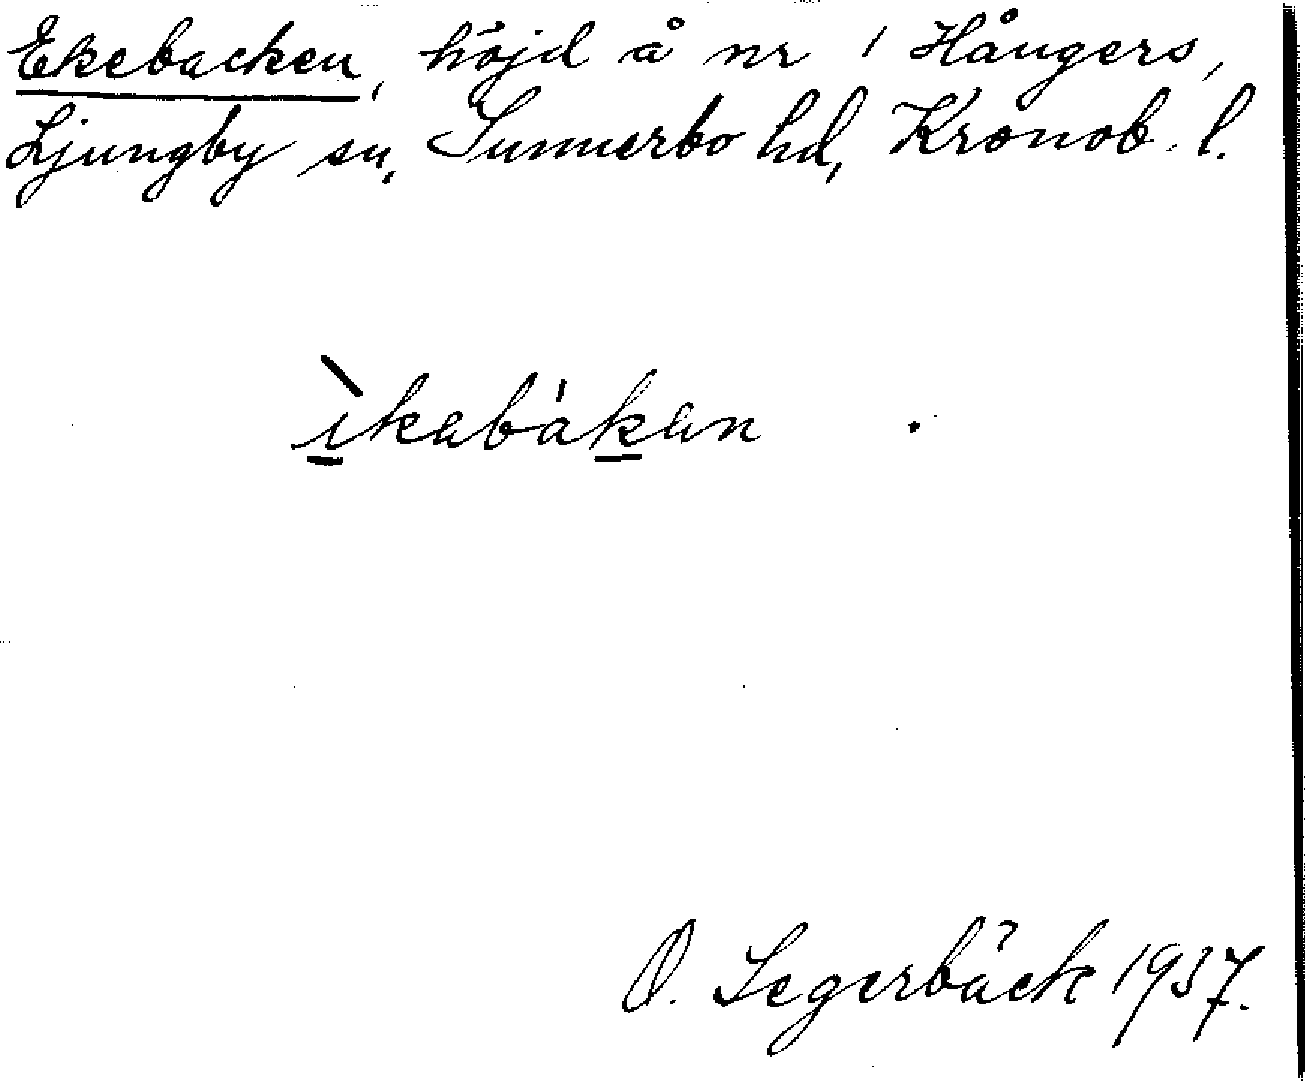 Ekebacken, höjd å nr 1 Hångers,
Ljungby sn, Sunnerbo hd, Kronob. l.
ìkabákan
O. Segerbäck 1937.